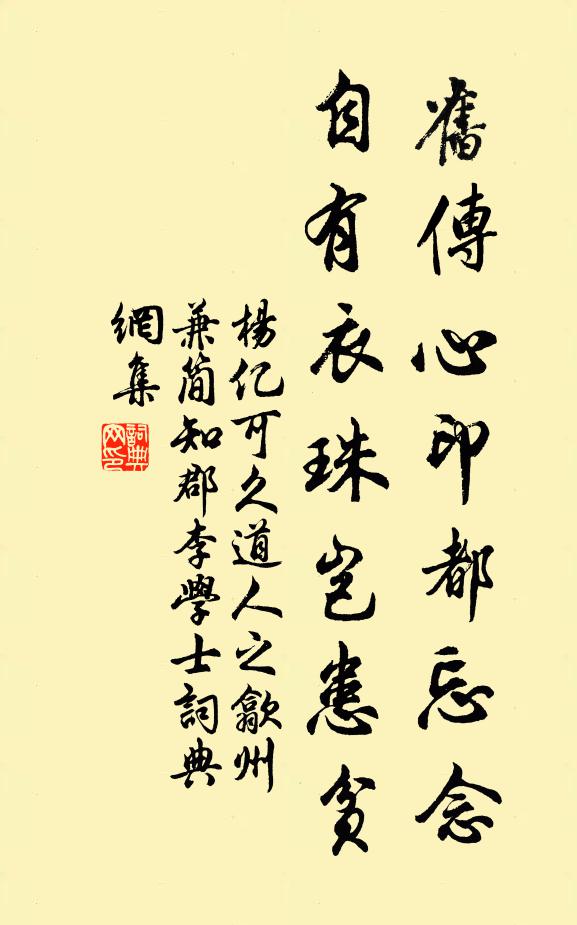 舊傳心印都忘念
自有衣珠豈患貧
楊億可久道人之歙州
兼簡知郡李學士詞典
網集
詞典
網印